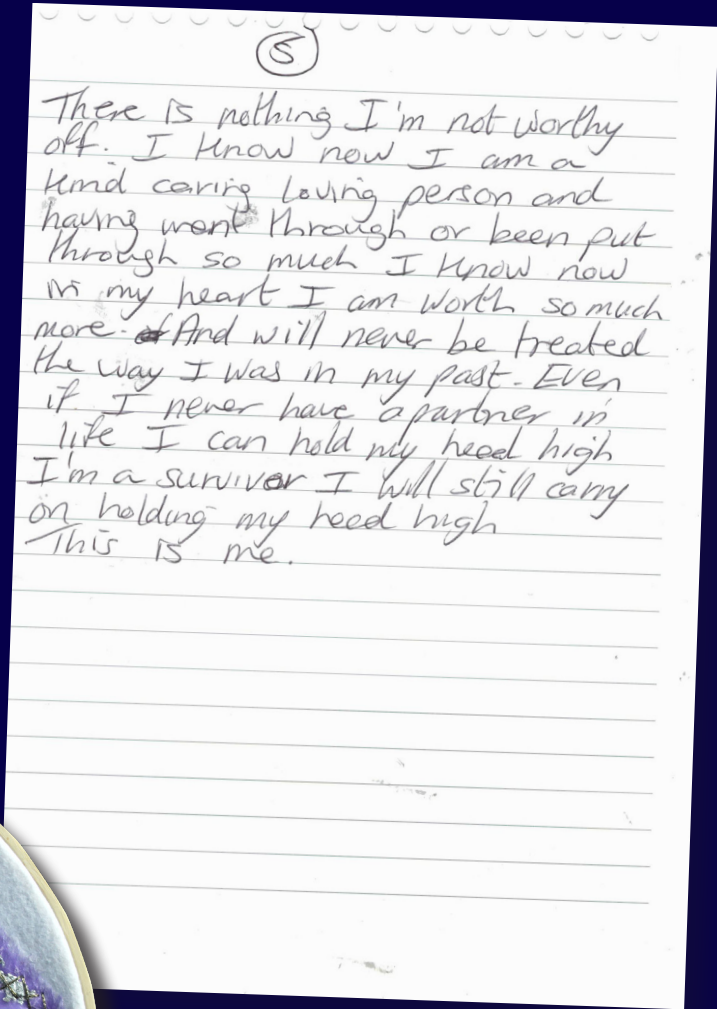 5
There is nothing I'm not worthy
off. I know now I am a
kind caring loving person and
having went through or been put
through so much I know now
in my heart I am worth so much
more. And will never be treated
the way I was in my past. Even
if I never have a partner in
life I can hold my head high
I'm a survivor I will still carry
on holding my head high
This is me.